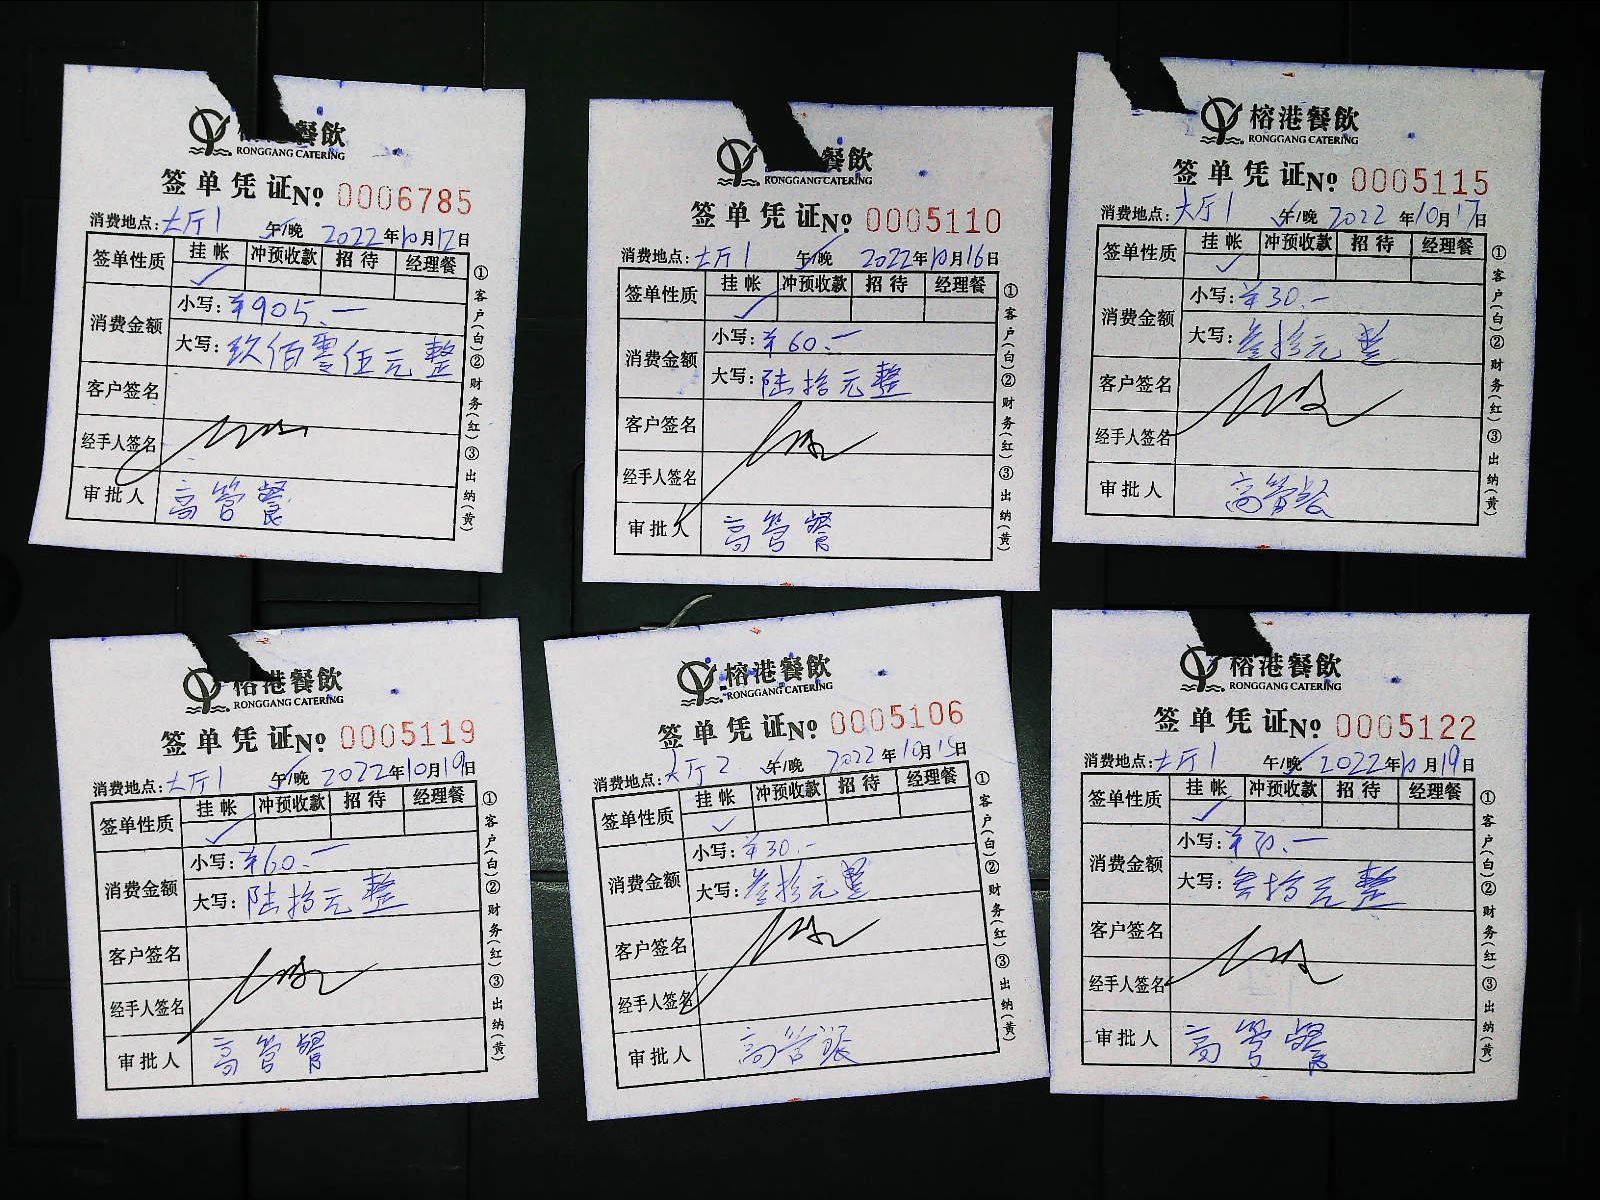 餐飲
RONGGANG CATERING
签单凭证№ 0006785
消费地点:大厅1 午/晚 2022年10月12日
签单性质 挂帐 冲预收款 招待 经理餐
✓
消费金额 小写:¥905.一
大写:玖佰零伍元整
客户签名
经手人签名
审批人 高管餐
①客户(白)②财务(红)③出纳(黄)
餐飲
RONGGANG CATERING
签单凭证№ 0005110
消费地点:大厅1 午/晚 2022年10月16日
签单性质 挂帐 冲预收款 招待 经理餐
✓
消费金额 小写:¥60.一
大写:陆拾元整
客户签名
经手人签名
审批人 高管餐
①客户(白)②财务(红)③出纳(黄)
榕港餐飲
RONGGANG CATERING
签单凭证№ 0005115
消费地点:大厅1 午/晚 2022年10月17日
签单性质 挂帐 冲预收款 招待 经理餐
✓
消费金额 小写:¥30.-
大写:叁拾元整
客户签名
经手人签名
审批人 高管餐
①客户(白)②财务(红)③出纳(黄)
榕港餐飲
RONGGANG CATERING
签单凭证№ 0005119
消费地点:大厅1 午/晚 2022年10月19日
签单性质 挂帐 冲预收款 招待 经理餐
✓
消费金额 小写:¥60.一
大写:陆拾元整
客户签名
经手人签名
审批人 高管餐
①客户(白)②财务(红)③出纳(黄)
榕港餐飲
RONGGANG CATERING
签单凭证№ 0005106
消费地点:大厅2 午/晚 2022年10月15日
签单性质 挂帐 冲预收款 招待 经理餐
✓
消费金额 小写:¥30.-
大写:叁拾元整
客户签名
经手人签名
审批人 高管
①客户(白)②财务(红)③出纳(黄)
榕港餐飲
RONGGANG CATERING
签单凭证№ 0005122
消费地点:大厅1 午/晚 2022年10月19日
签单性质 挂帐 冲预收款 招待 经理餐
✓
消费金额 小写:¥30.一
大写:叁拾元整
客户签名
经手人签名
审批人 高管餐
①客户(白)②财务(红)③出纳(黄)